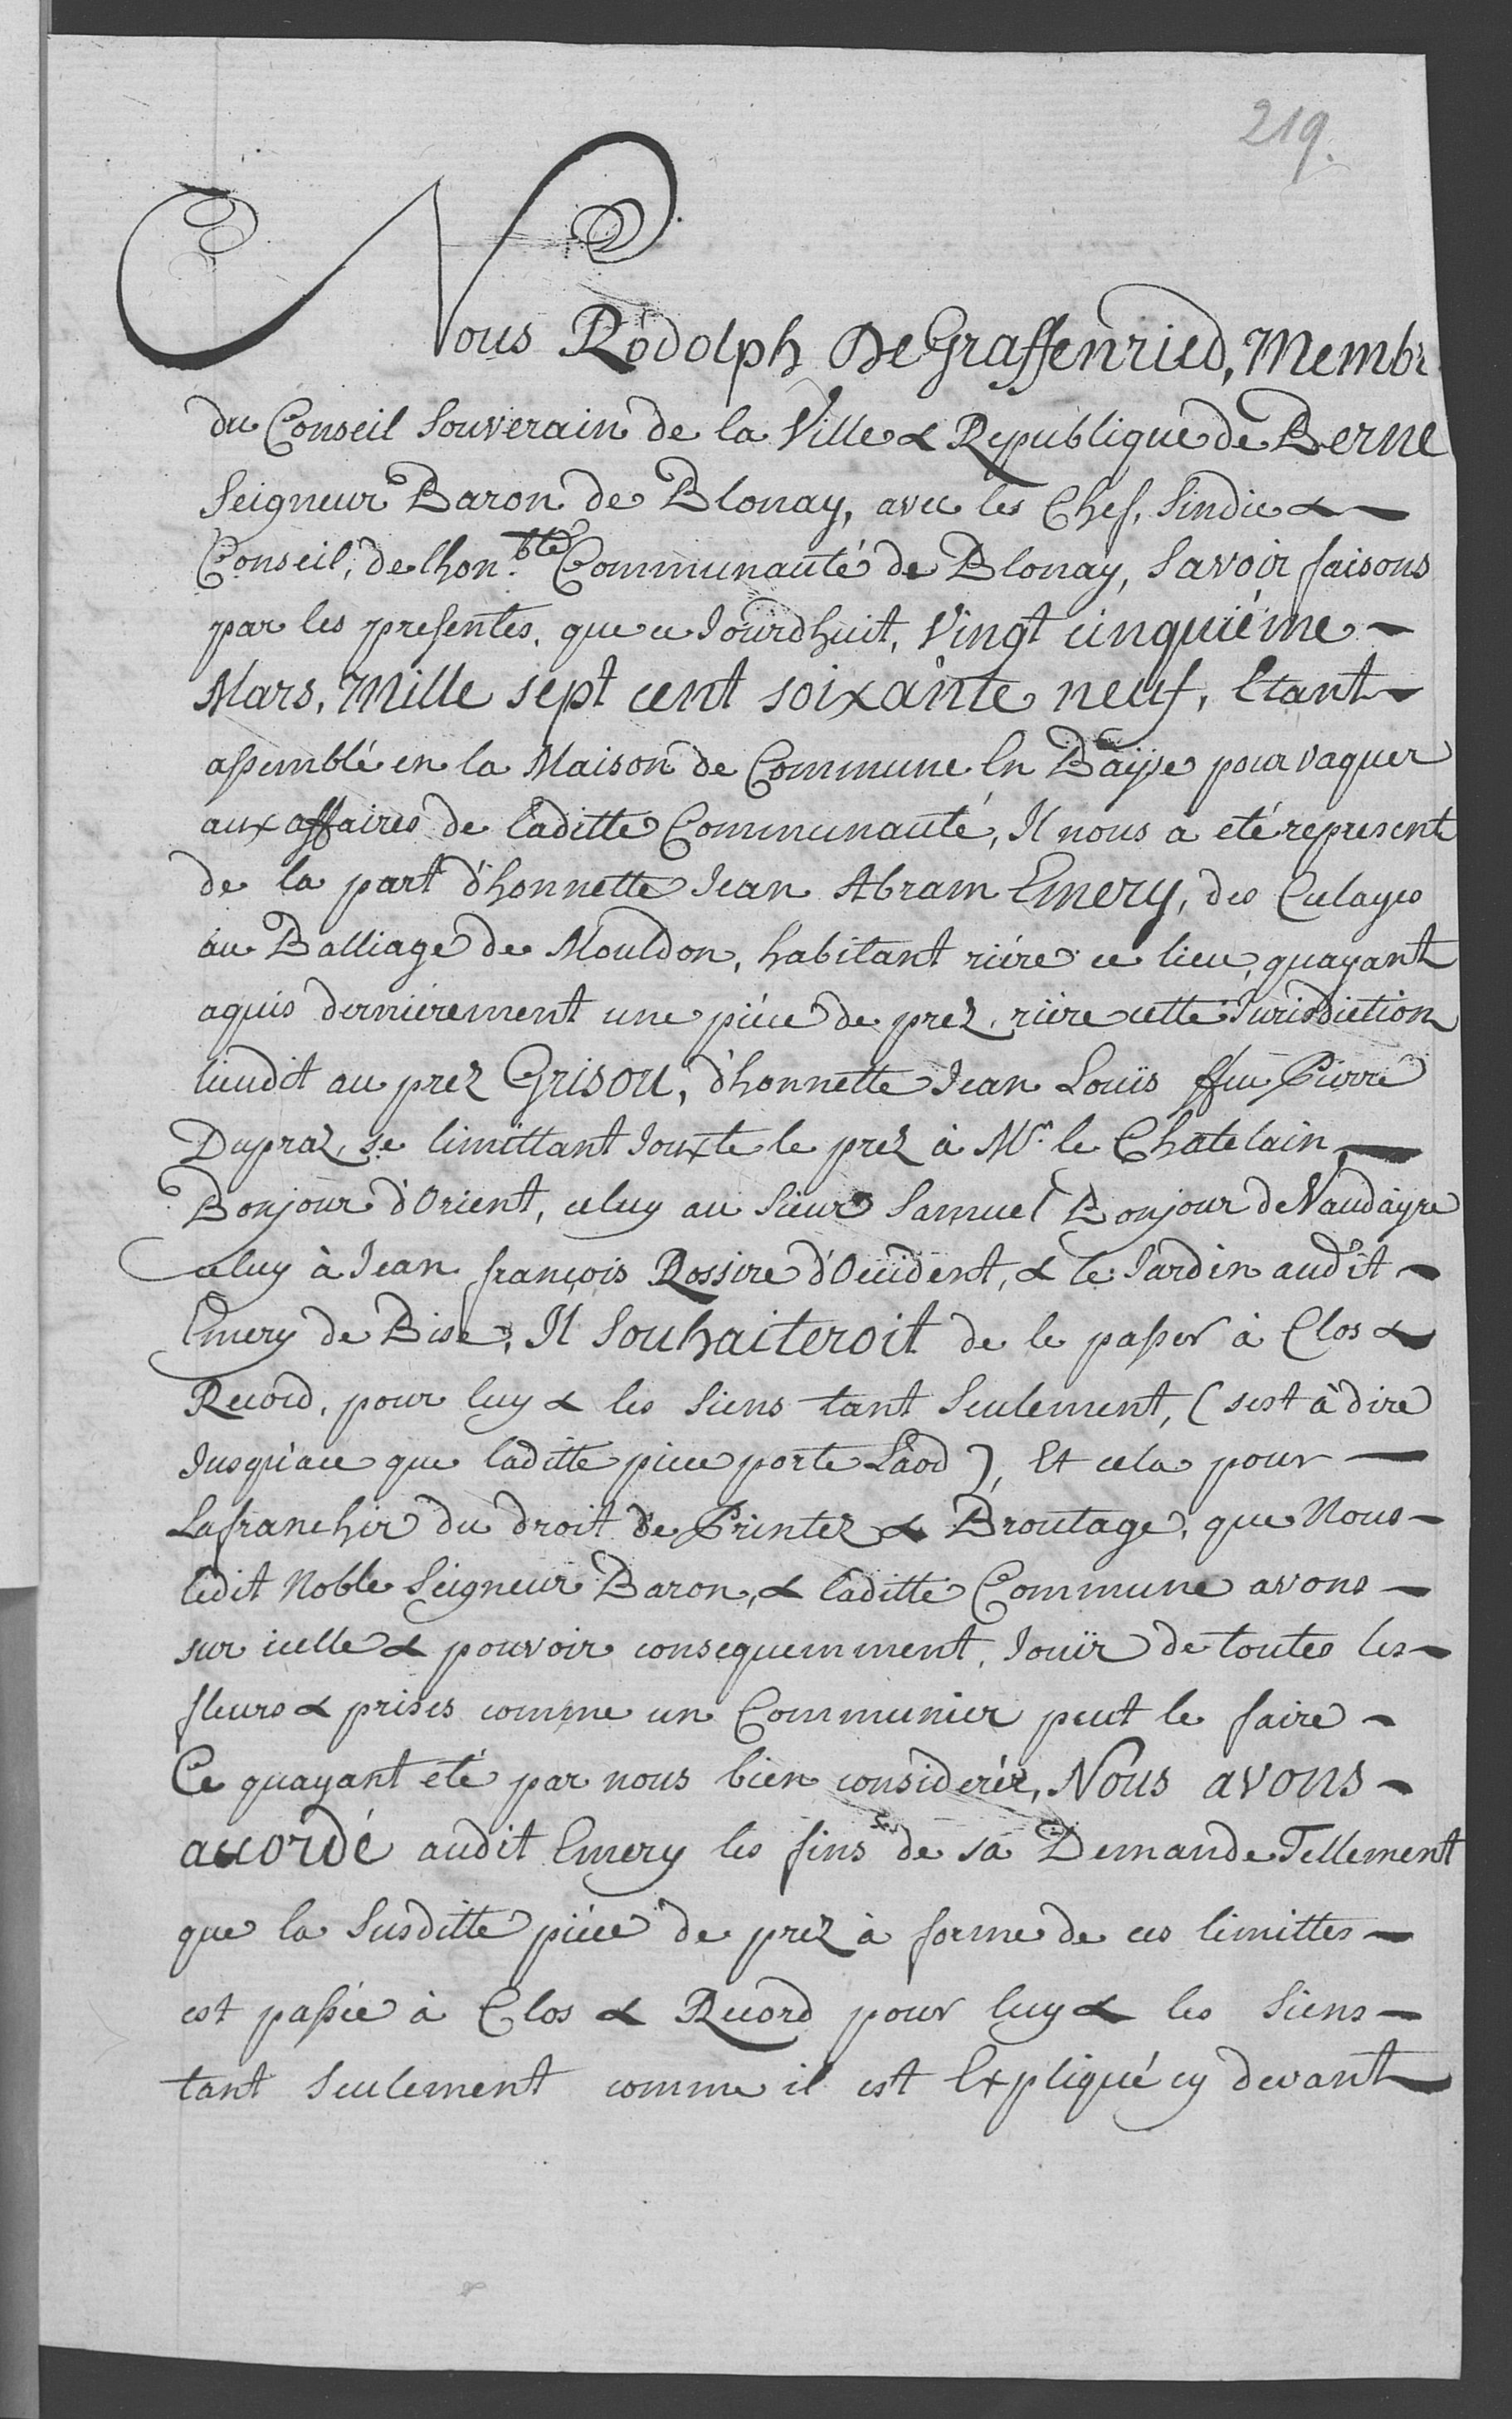 219.
Nous Rodolph DeGraffenried, Membr
du Conseil Souverain de la Ville & Republique de Berne
Seigneur Baron de Blonay, avec les Chef, Sindic & —
Conseil, de lhon.ble Communauté de Blonay, Savoir faisons
par les presentes, que ce Jourdhuit, Vingt cinquiéme —
Mars, Mille sept cent soixante neuf, Etant —
assemblé en la Maison de Commune En Baÿse pour vaquer
aux affaires de laditte Communauté, Il nous a eté represent
de la part d'honnette Jean Abram Emery, des Culayes
au Balliage de Mouldon, habitant riére ce lieu, quayant
aquis derniérement une piéce de prez, riére cette Jurisdiction
lieudit au prez Grisou, d'honnette Jean Louïs ffeu Pierre
Dupraz, se limittant Jouxte le prez à Mr. le Chatelain —
Bonjour d'Orient, celuy au Sieur Samuel Bonjour de Vaudayre
celuy à Jean françois Rossire d'Occident, & le Jardin audit —
Emery de Bise, Il Souhaiteroit de le passer à Clos &
Record, pour luy & les Siens tant Seulement, (sest à dire
Jusqu'ace que laditte piece porte Laod), Et cela pour —
Lafranchir du droit de Printez & Broutage, que Nous —
ledit Noble Seigneur Baron, & laditte Commune avons —
sur icelle & pouvoir consequemment, Jouïr de toutes les —
fleurs & prises comme un Communier peut le faire —
Ce quayant eté par nous bien considerér, Nous avons —
accordé audit Emery les fins de sa Demande Tellement
que la Susditte piéce de prez à forme de ces limittes —
est passée à Clos & Record pour luy & les Siens —
tant Seulement comme il est Expliqué cy devant —